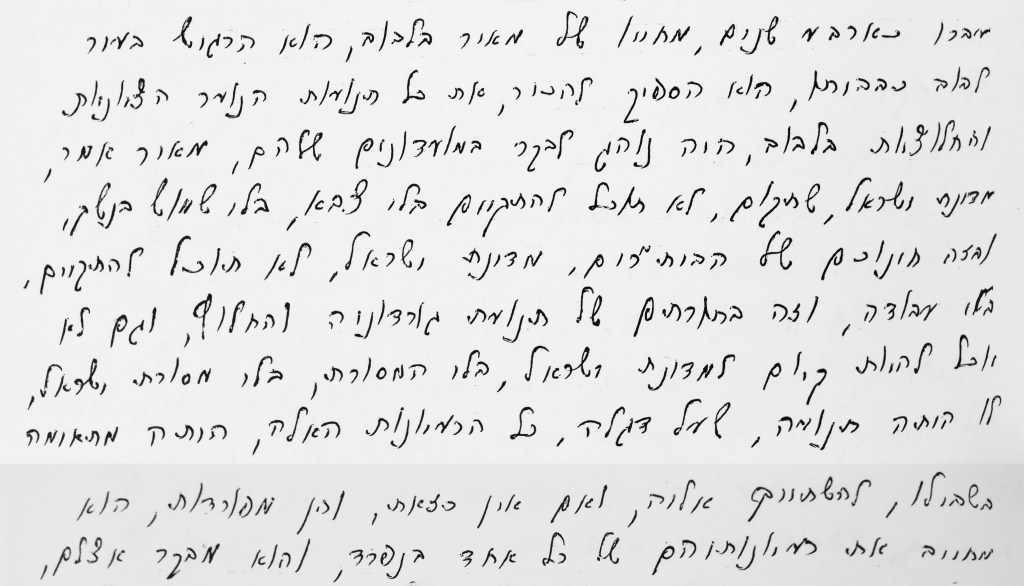 עברו כארבע שנים, מחייו של מאיר בלבוב, הוא הרגיש בעיר
לבוב כבבותו, הוא הספיק להכיר, את כל תנועות הנוער הציוניות
והחלוציות בלבוב, היה נוהג לבקר במועדונים שלהם, מאיר אמר,
מדינת ישראל, שתקום, לא תוכל להתקיים בלי צבא, בלי שמוש בנשק,
ובזה חינוכם של הבית״רים, מדינת ישראל, לא תוכל להתקיים,
בלי עבודה, וזה בתורתם של תנועת גורדוניה והחלוץ, וגם לא
יוכל להיות קיום למדינת ישראל, בלי המסורת, בלי מסורת ישראל,
לו היתה תנועה, שעל דגלה, כל הרעיונות האלה, היתה מתאימה
בשבילו, להשתייך אליה, ואם אין כזאת, והן מפורדות, הוא
מחייב את רעיונותיהם של כל אחד בנפרד, והוא מבקר אצלם,